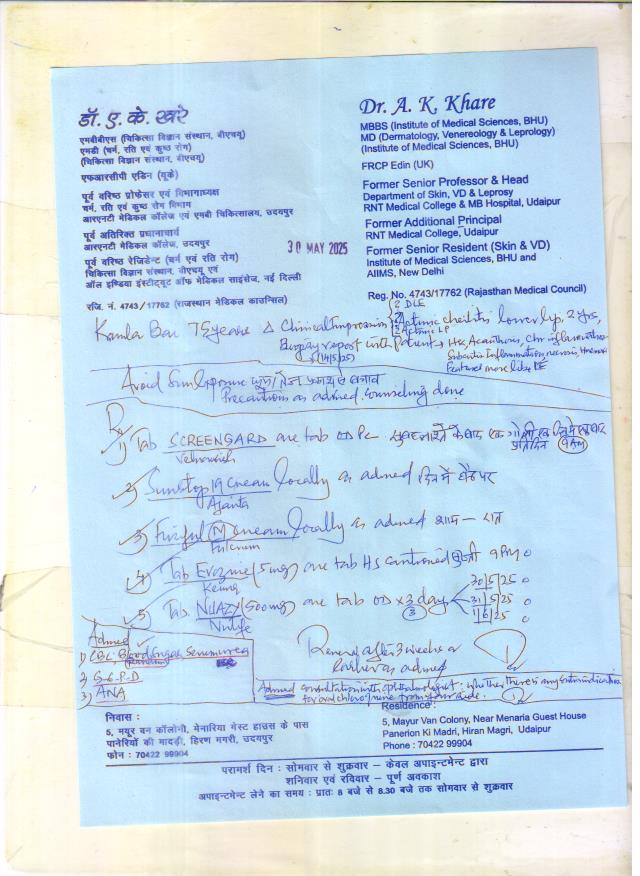 डॉ. ए. के. खरे
एमबीबीएस (चिकित्सा विज्ञान संस्थान, बीएचयू)
एमडी (चर्म, रति एवं कुष्ठ रोग)
(चिकित्सा विज्ञान संस्थान, बीएचयू)
एफआरसीपी एडिन (यूके)
पूर्व वरिष्ठ प्रोफेसर एवं विभागाध्यक्ष
चर्म, रति एवं कुष्ठ रोग विभाग
आरएनटी मेडिकल कॉलेज एवं एमबी चिकित्सालय, उदयपुर
पूर्व अतिरिक्त प्रधानाचार्य
आरएनटी मेडिकल कॉलेज, उदयपुर
पूर्व वरिष्ठ रेजिडेन्ट (चर्म एवं रति रोग)
चिकित्सा विज्ञान संस्थान, बीएचयू एवं
ऑल इण्डिया इंस्टीट्यूट ऑफ मेडिकल साइंसेज, नई दिल्ली
रजि. नं. 4743/17762 (राजस्थान मेडिकल काउन्सिल)
Dr. A. K. Khare
MBBS (Institute of Medical Sciences, BHU)
MD (Dermatology, Venereology & Leprology)
(Institute of Medical Sciences, BHU)
FRCP Edin (UK)
Former Senior Professor & Head
Department of Skin, VD & Leprosy
RNT Medical College & MB Hospital, Udaipur
Former Additional Principal
RNT Medical College, Udaipur
Former Senior Resident (Skin & VD)
Institute of Medical Sciences, BHU and
AIIMS, New Delhi
Reg. No. 4743/17762 (Rajasthan Medical Council)
30 MAY 2025
? DLE
Kamla Bai 75 years Δ Clinical Impression ? Actinic cheilitis, lower lip, 2 yrs,
? Actinic LP
Biopsy report with patient
(14/5/25)
Features more like
Avoid Sun Exposure
Precautions as advised. Counseling done
Rx
1) Tab SCREENGARD one tab OD PC
9 AM
2) Sunstop 19 cream locally as advised दिन में
Ajanta
3) cream locally as advised शाम - रात
Fulcrum
4) Tab (5mg) one tab HS continued 9 PM
5) Tab (500mg) one tab OD x 3 days
30/5/25
31/5/25
1/6/25
Advised
1) CBC
2) G-6-P-D
3) ANA
Renew after 3 weeks or
earlier as advised
Advised consultation with ophthalmologist: whether there is any contraindication
for oral chloroquine from your side.
निवास :
5, मयूर वन कॉलोनी, मेनारिया गेस्ट हाउस के पास
पानेरियों की मादड़ी, हिरण मगरी, उदयपुर
फोन : 70422 99904
Residence :
5, Mayur Van Colony, Near Menaria Guest House
Panerion Ki Madri, Hiran Magri, Udaipur
Phone : 70422 99904
परामर्श दिन : सोमवार से शुक्रवार – केवल अपाइन्टमेन्ट द्वारा
शनिवार एवं रविवार – पूर्ण अवकाश
अपाइन्टमेन्ट लेने का समय : प्रातः 8 बजे से 8.30 बजे तक सोमवार से शुक्रवार